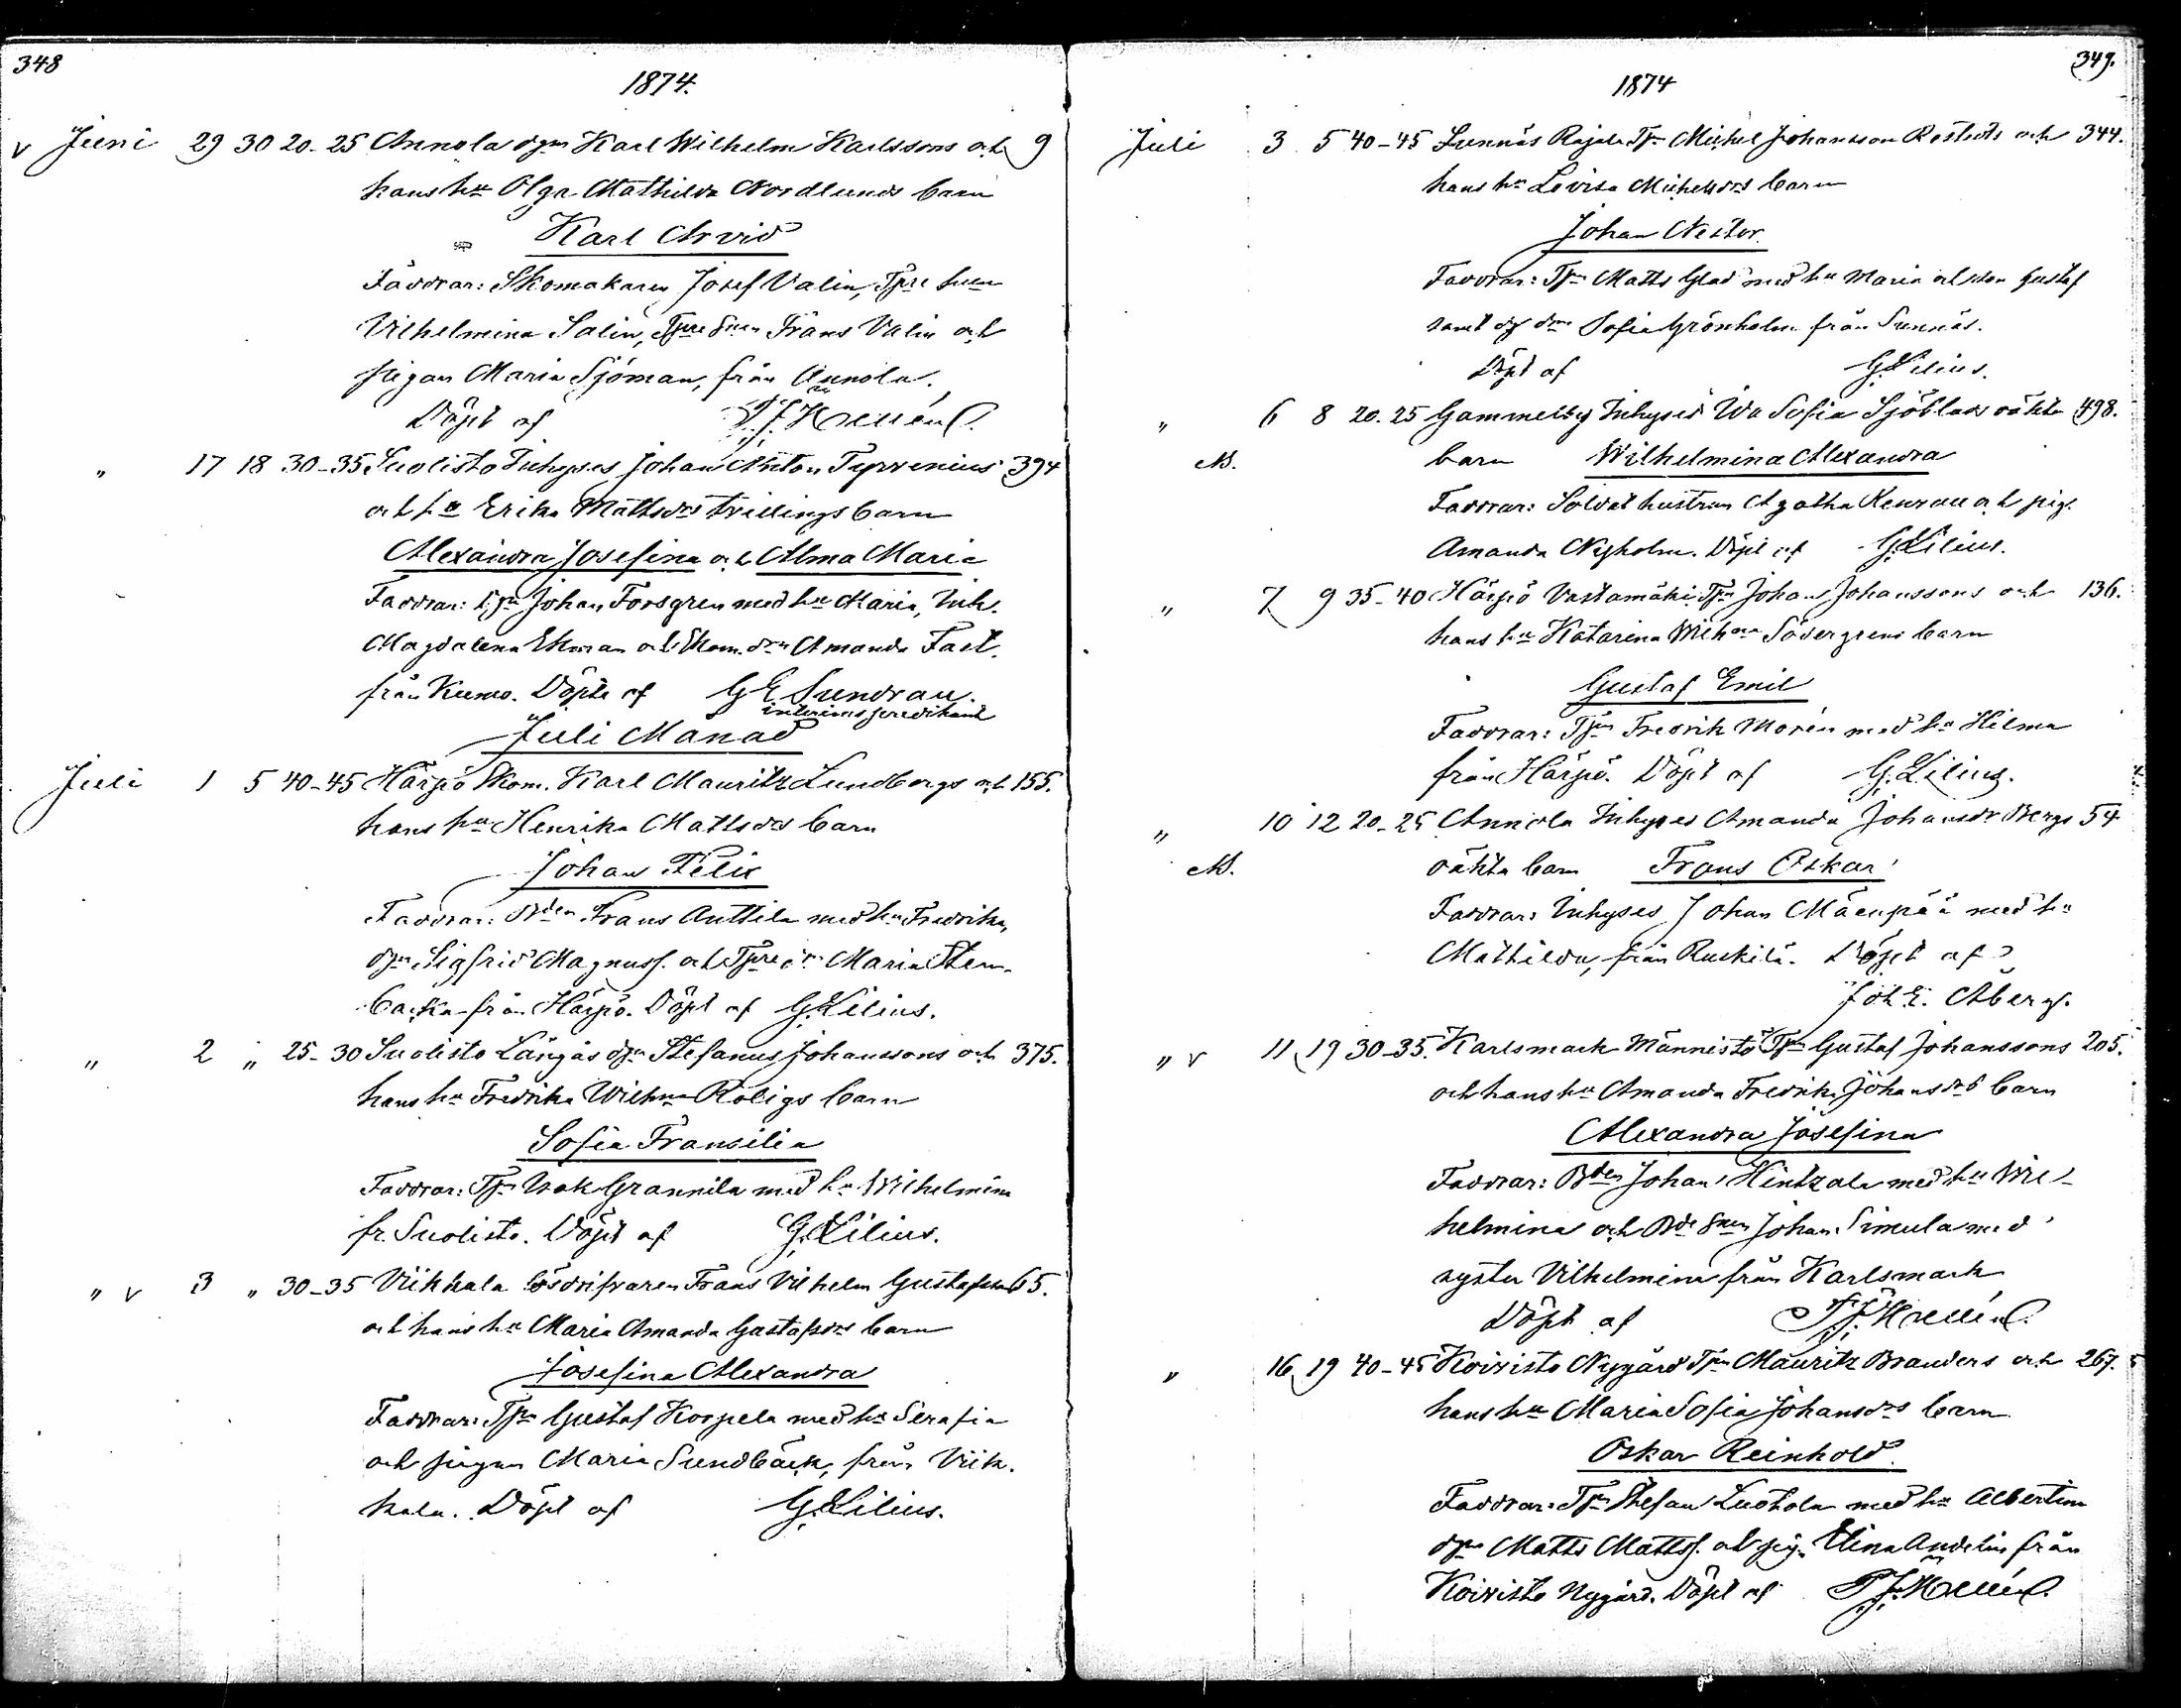 348
1874.
v Juni 29 30 20-25 Annola dgn Karl Wilhelm Karlssons och 9
hans hu Olga Mathilda Nordlunds barn
Karl Arvid
Faddrar: Skomakaren Josef Valin, Tpre
Vilhelmina Salin, Tpre Frans Valin och
pigan Maria Sjöman, från Annola.
Döpt af
" 17 18 30-35 Suolisto Inhyses Johan Anton Tyrvenius 394
och hu Erika Mattsdrs tvillingsbarn
Alexandra Josefina och Alma Maria
Faddrar: Johan Forsgren med hu Maria, Inh.
Magdalena Ekman och Skom. Amanda Fast.
från Kumo. Döpte af G E Sundvall.
interims predikant
Juli Månad
Juli 1 5 40-45 Härpö Skom. Karl Mauritz Lundbergs och 155.
hans hu Henrika Mattsdrs barn
Johan Felix
Faddrar: Bden Frans Anttila med hu Fredrika,
dgn Sigfrid Magnuss. och Tpre Maria Sten-
backa från Härpö. Döpt af G. Lilius.
" 2 " 25-30 Suolisto Långås dgn Stefanus Johanssons och 375.
hans hu Fredrika Wilhna Roligs barn
Sofia Fransilia
Faddrar: Tpn Isak Grannila med hu Wilhelmina
fr. Suolisto. Döpt af G. Lilius.
" v 3 " 30-35 Viikkala lösdrifvaren Frans Vilhelm Gustafssons 65.
och hans hu Maria Amanda Gustafsdrs barn
Josefina Alexandra
Faddrar: Tpn Gustaf Korpela med hu Serafia
och pigan Maria Sundbäck, från Viik-
kala. Döpt af G. Lilius.
349.
1874
Juli 3 5 40-45 Sunnäs Rajala Tpn Michel Johansson Rosteds och 344.
hans hu Lovisa Michelsdrs barn
Johan Nestor.
Faddrar: Tpn Matts Glad med hu Maria och son Gustaf
samt Sofia Grönholm från Sunnäs.
Döpt af G. Lilius.
" 6 8 20-25 Gammelby Inhyses Ida Sofia Sjöblads oäkta 498.
barn Wilhelmina Alexandra
Faddrar: Soldat hustrun Agatha och pig.
Amanda Nyholm. Döpt af G. Lilius.
" 7 9 35-40 Härpö Vastamäki Tpn Johan Johanssons och 136.
hans hu Katarina Wilhna Södergrens barn
Gustaf Emil
Faddrar: Tpn Fredrik Morén med hu Hilma
från Härpö. Döpt af G. Lilius.
" 10 12 20-25 Annola Inhyses Amanda Johansdr Bergs 54
oäkta barn Frans Oskar
Faddrar: Inhyses Johan Mäenpää med hu
Mathilda, från Ruskila. Döpt af
Joh E. Åberg.
" v 11 19 30-35. Karlsmark Männistö Tpn Gustaf Johanssons 205.
och hans hu Amanda Fredrika Johansdrs barn
Alexandra Josefina
Faddrar: Bden Johan Hintzala med hu Wil-
helmina och Bde Johan Simula med
syster Vilhelmina från Karlsmark
Döpt af
" 16 19 40-45 Koivisto Nygård Tpn Mauritz Branders och 267.
hans hu Maria Sofia Johansdrs barn
Oskar Reinhold.
Faddrar: Tpn Stefan Luotola med hu Albertina
dgn Matts Mattss. och pig. Elina Andelin från
Koivisto Nygård. Döpt af